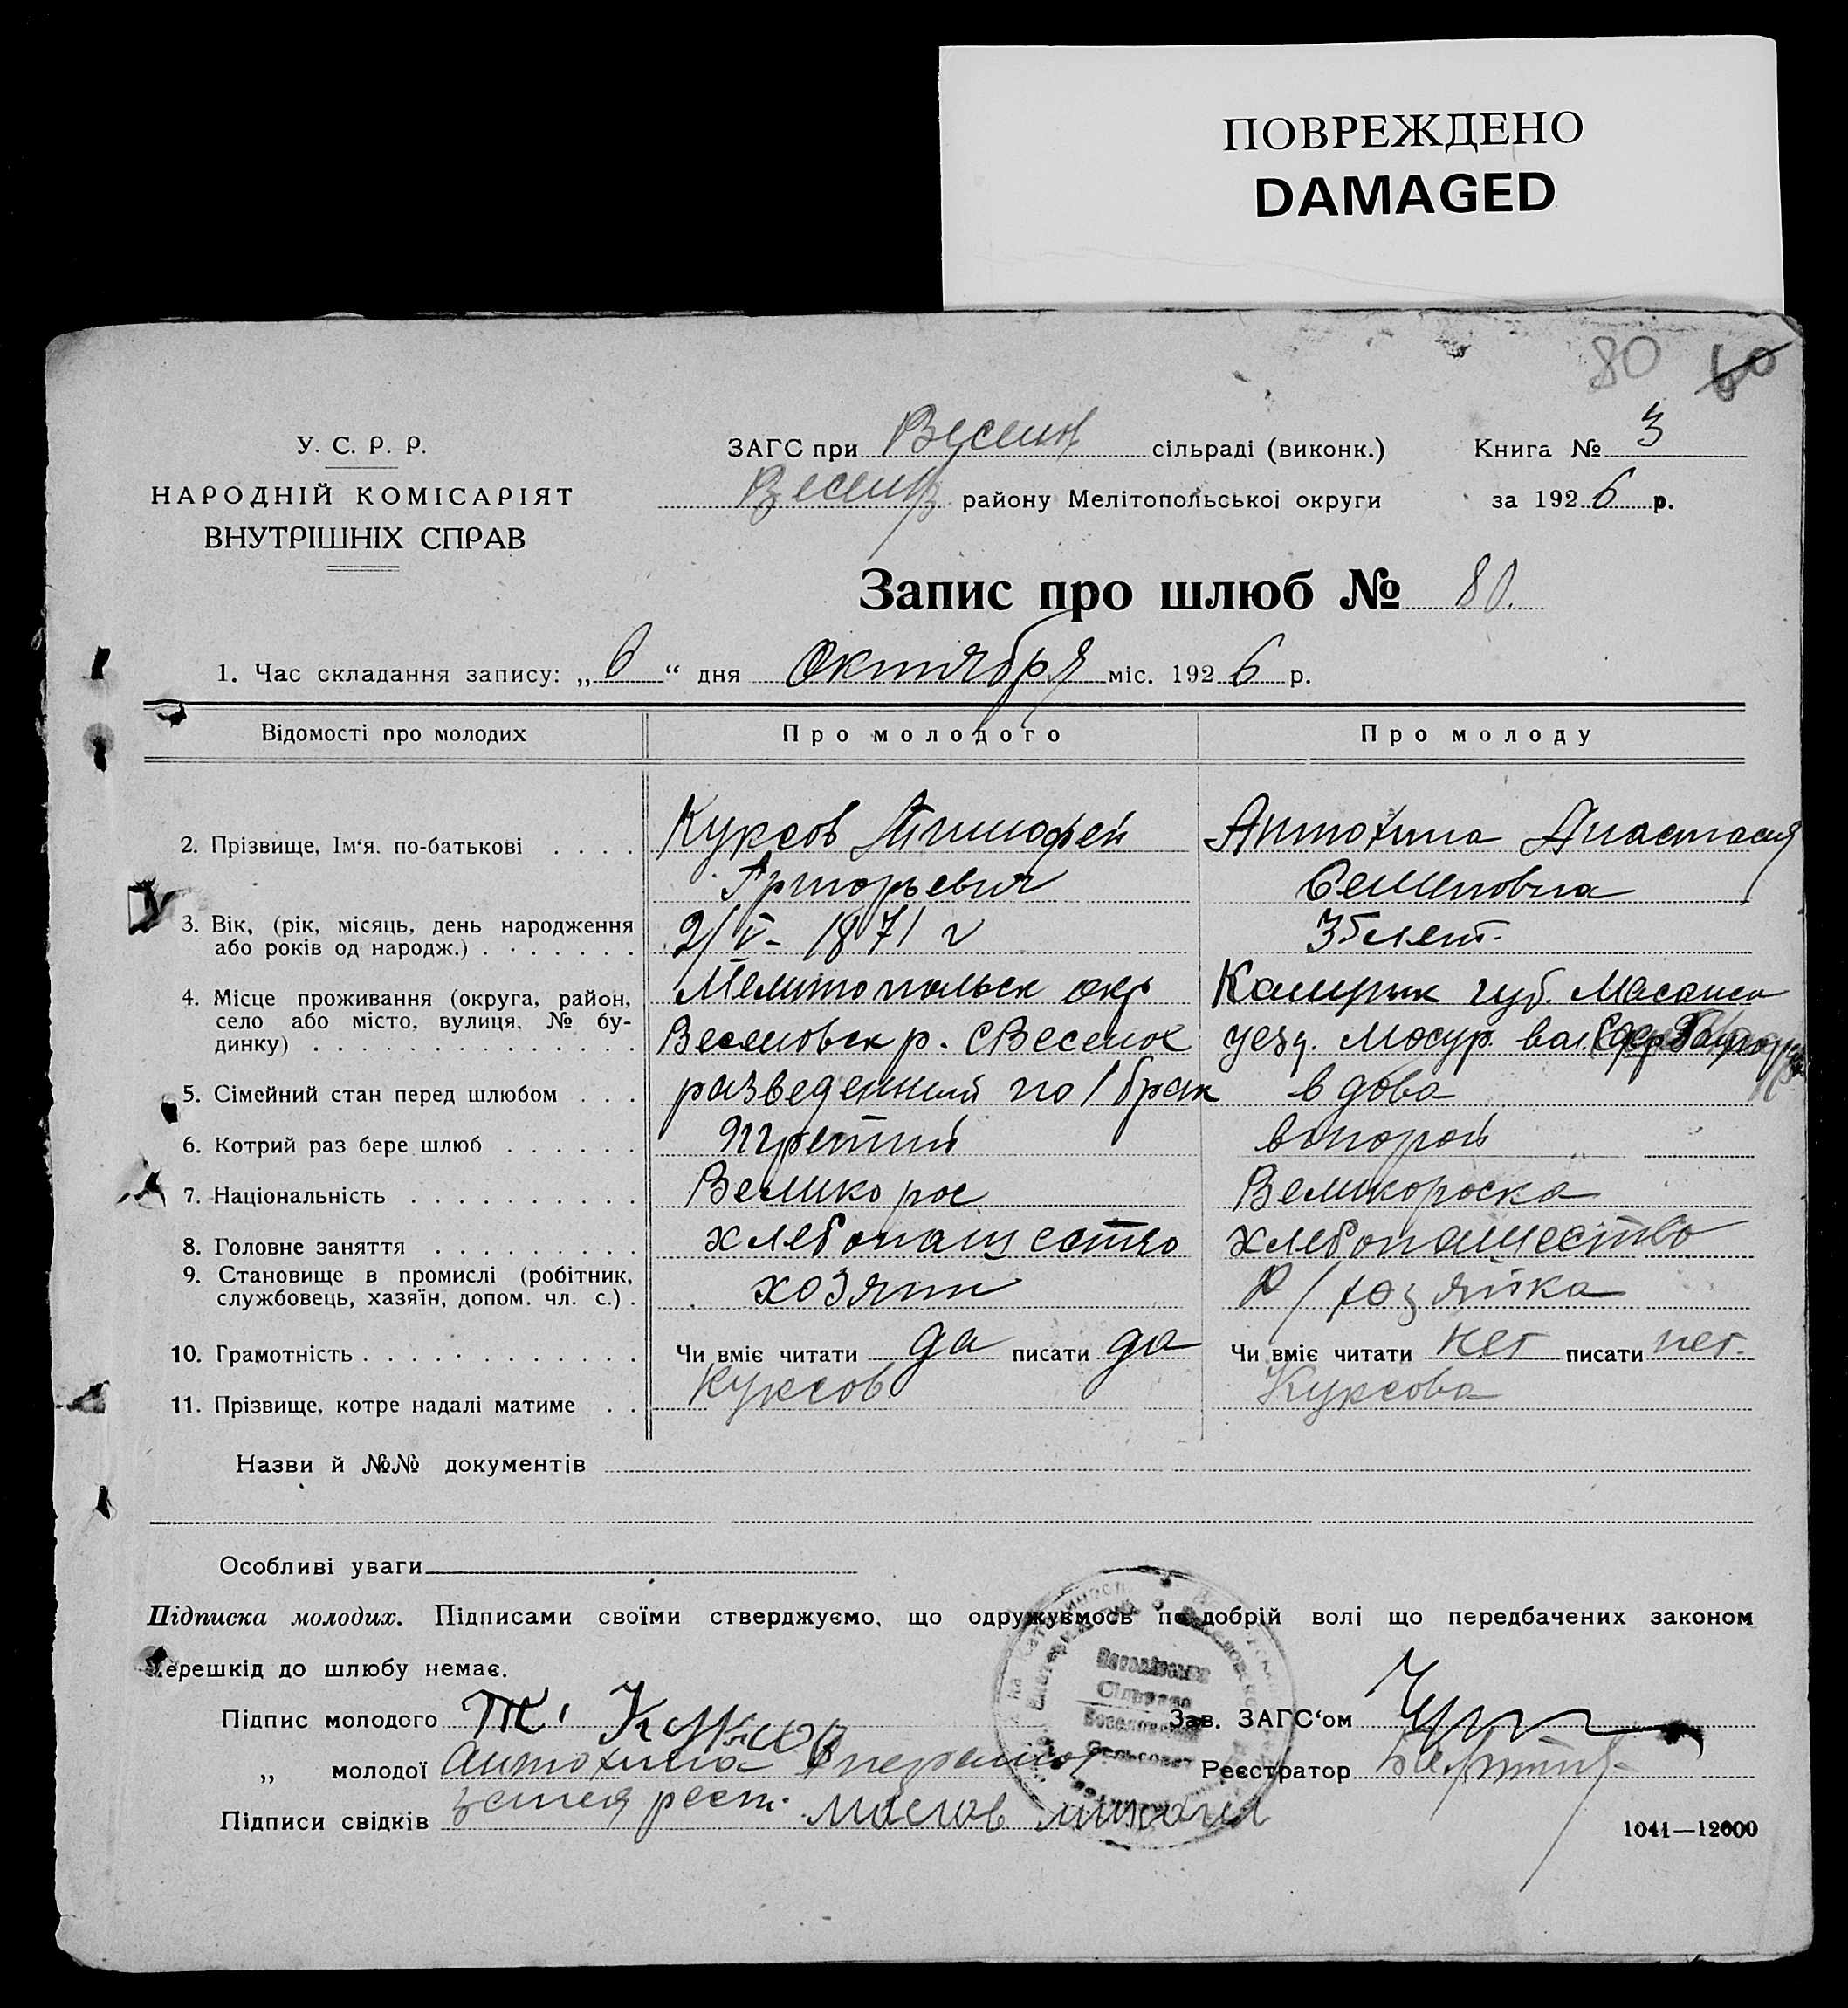 ПОВРЕЖДЕНО
DAMAGED
80 60
У. С. Р. Р.
НАРОДНІЙ КОМІСАРІЯТ
ВНУТРІШНІХ СПРАВ
ЗАГС при Веселов сільраді (виконк.) Книга № 3
Веселов району Мелітопольської округи за 1926 р.
Запис про шлюб № 80.
1. Час складання запису: „6“ дня Октября міс. 1926 р.
Відомості про молодих Про молодого Про молоду
2. Прізвище, Ім‘я. по-батькові Куксов Тимофей Антохина Анастасия
Григорьевич Семеновна
3. Вік, (рік, місяць, день народження 2/V- 1871 г 35 лет.
або років од народж.)
4. Місце проживання (округа, район, Мелитопольск окр губ.
село або місто, вулиця, № бу- Веселовск р. с Веселое уезд. вол.
динку)
5. Сімейний стан перед шлюбом разведенный по 1 брак вдова
6. Котрий раз бере шлюб третий второй
7. Національність Великорос Великороска
8. Головне заняття хлебопашество хлебопашество
9. Становище в промислі (робітник, хозяин д/хозяйка
службовець, хазяїн, допом. чл. с.)
10. Грамотність Чи вміє читати да писати да Чи вміє читати нет писати нет.
11. Прізвище, котре надалі матиме Куксов Куксова
Назви й №№ документів
Особливі уваги
Підписка молодих. Підписами своїми стверджуємо, що одружуємось по добрій волі що передбачених законом
перешкід до шлюбу немає.
Підпис молодого Т. Куксов Зав. ЗАГС‘ом
„ молодої Антохина Реєстратор
Підписи свідків Маслов Михаил
Веселівська
Сільрада
Веселовский
Сельсовет
1041—12000